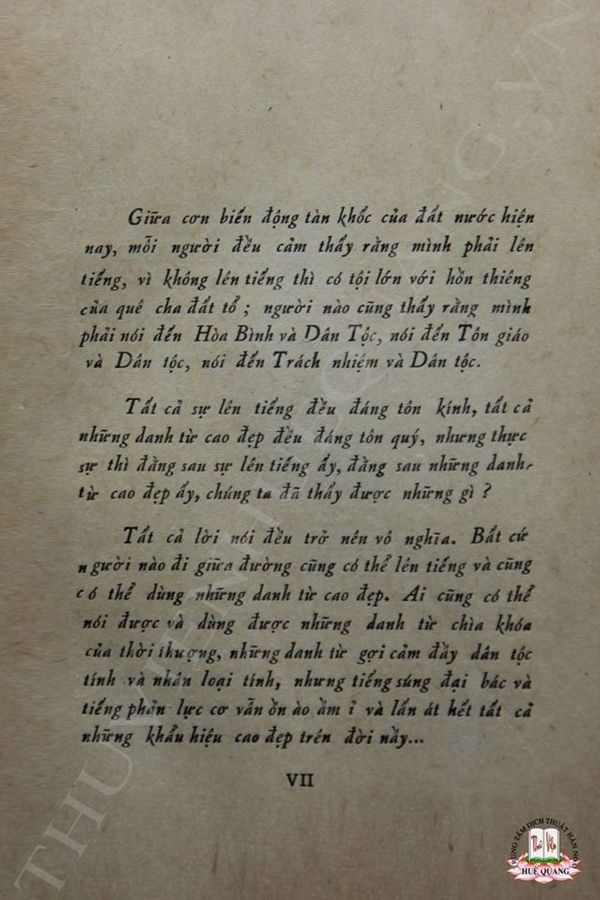 Giữa cơn biến động tàn khốc của đất nước hiện
nay, mỗi người đều cảm thấy rằng mình phải lên
tiếng, vì không lên tiếng thì có tội lớn với hồn thiêng
của quê cha đất tổ ; người nào cũng thấy rằng mình
phải nói đến Hòa Bình và Dân Tộc, nói đến Tôn giáo
và Dân tộc, nói đến Trách nhiệm và Dân tộc.
Tất cả sự lên tiếng đều đáng tôn kính, tất cả
những danh từ cao đẹp đều đáng tôn quý, nhưng thực
sự thì đằng sau sự lên tiếng ấy, đằng sau những danh
từ cao đẹp ấy, chúng ta đã thấy được những gì ?
Tất cả lời nói đều trở nên vô nghĩa. Bất cứ
người nào đi giữa đường cũng có thể lên tiếng và cũng
có thể dùng những danh từ cao đẹp. Ai cũng có thể
nói được và dùng được những danh từ chìa khóa
của thời thượng, những danh từ gợi cảm đầy dân tộc
tính và nhân loại tính, nhưng tiếng súng đại bác và
tiếng phản lực cơ vẫn ồn ào ầm ĩ và lấn át hết tất cả
những khẩu hiệu cao đẹp trên đời nầy...
VII
TRUNG TÂM DỊCH THUẬT HÁN NÔM
HUỆ QUANG